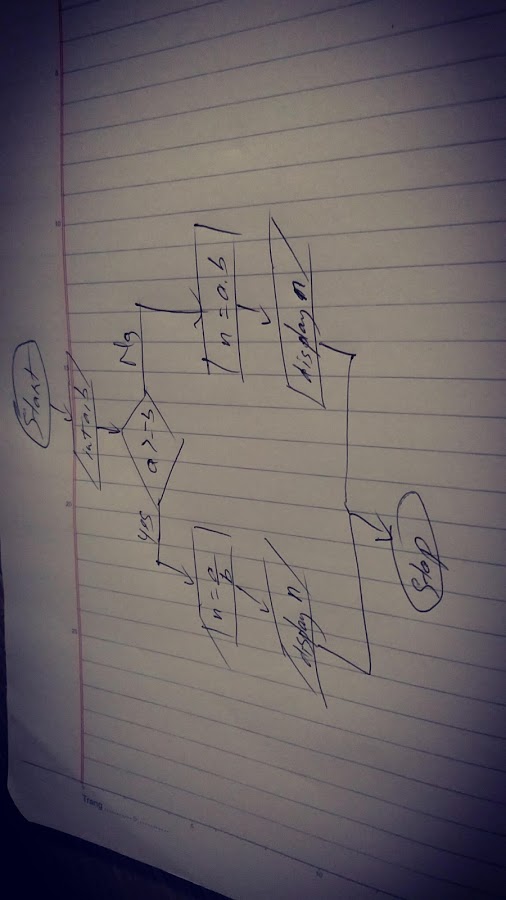 Start
int a,b
a >= b
yes
No
n = a/b
n = a.b
display n
display n
Stop
Trang